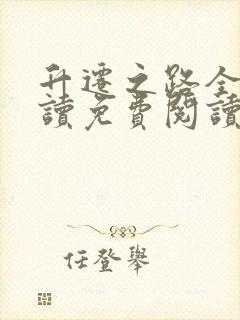 升遷之路全
讀免費閱讀
任登舉